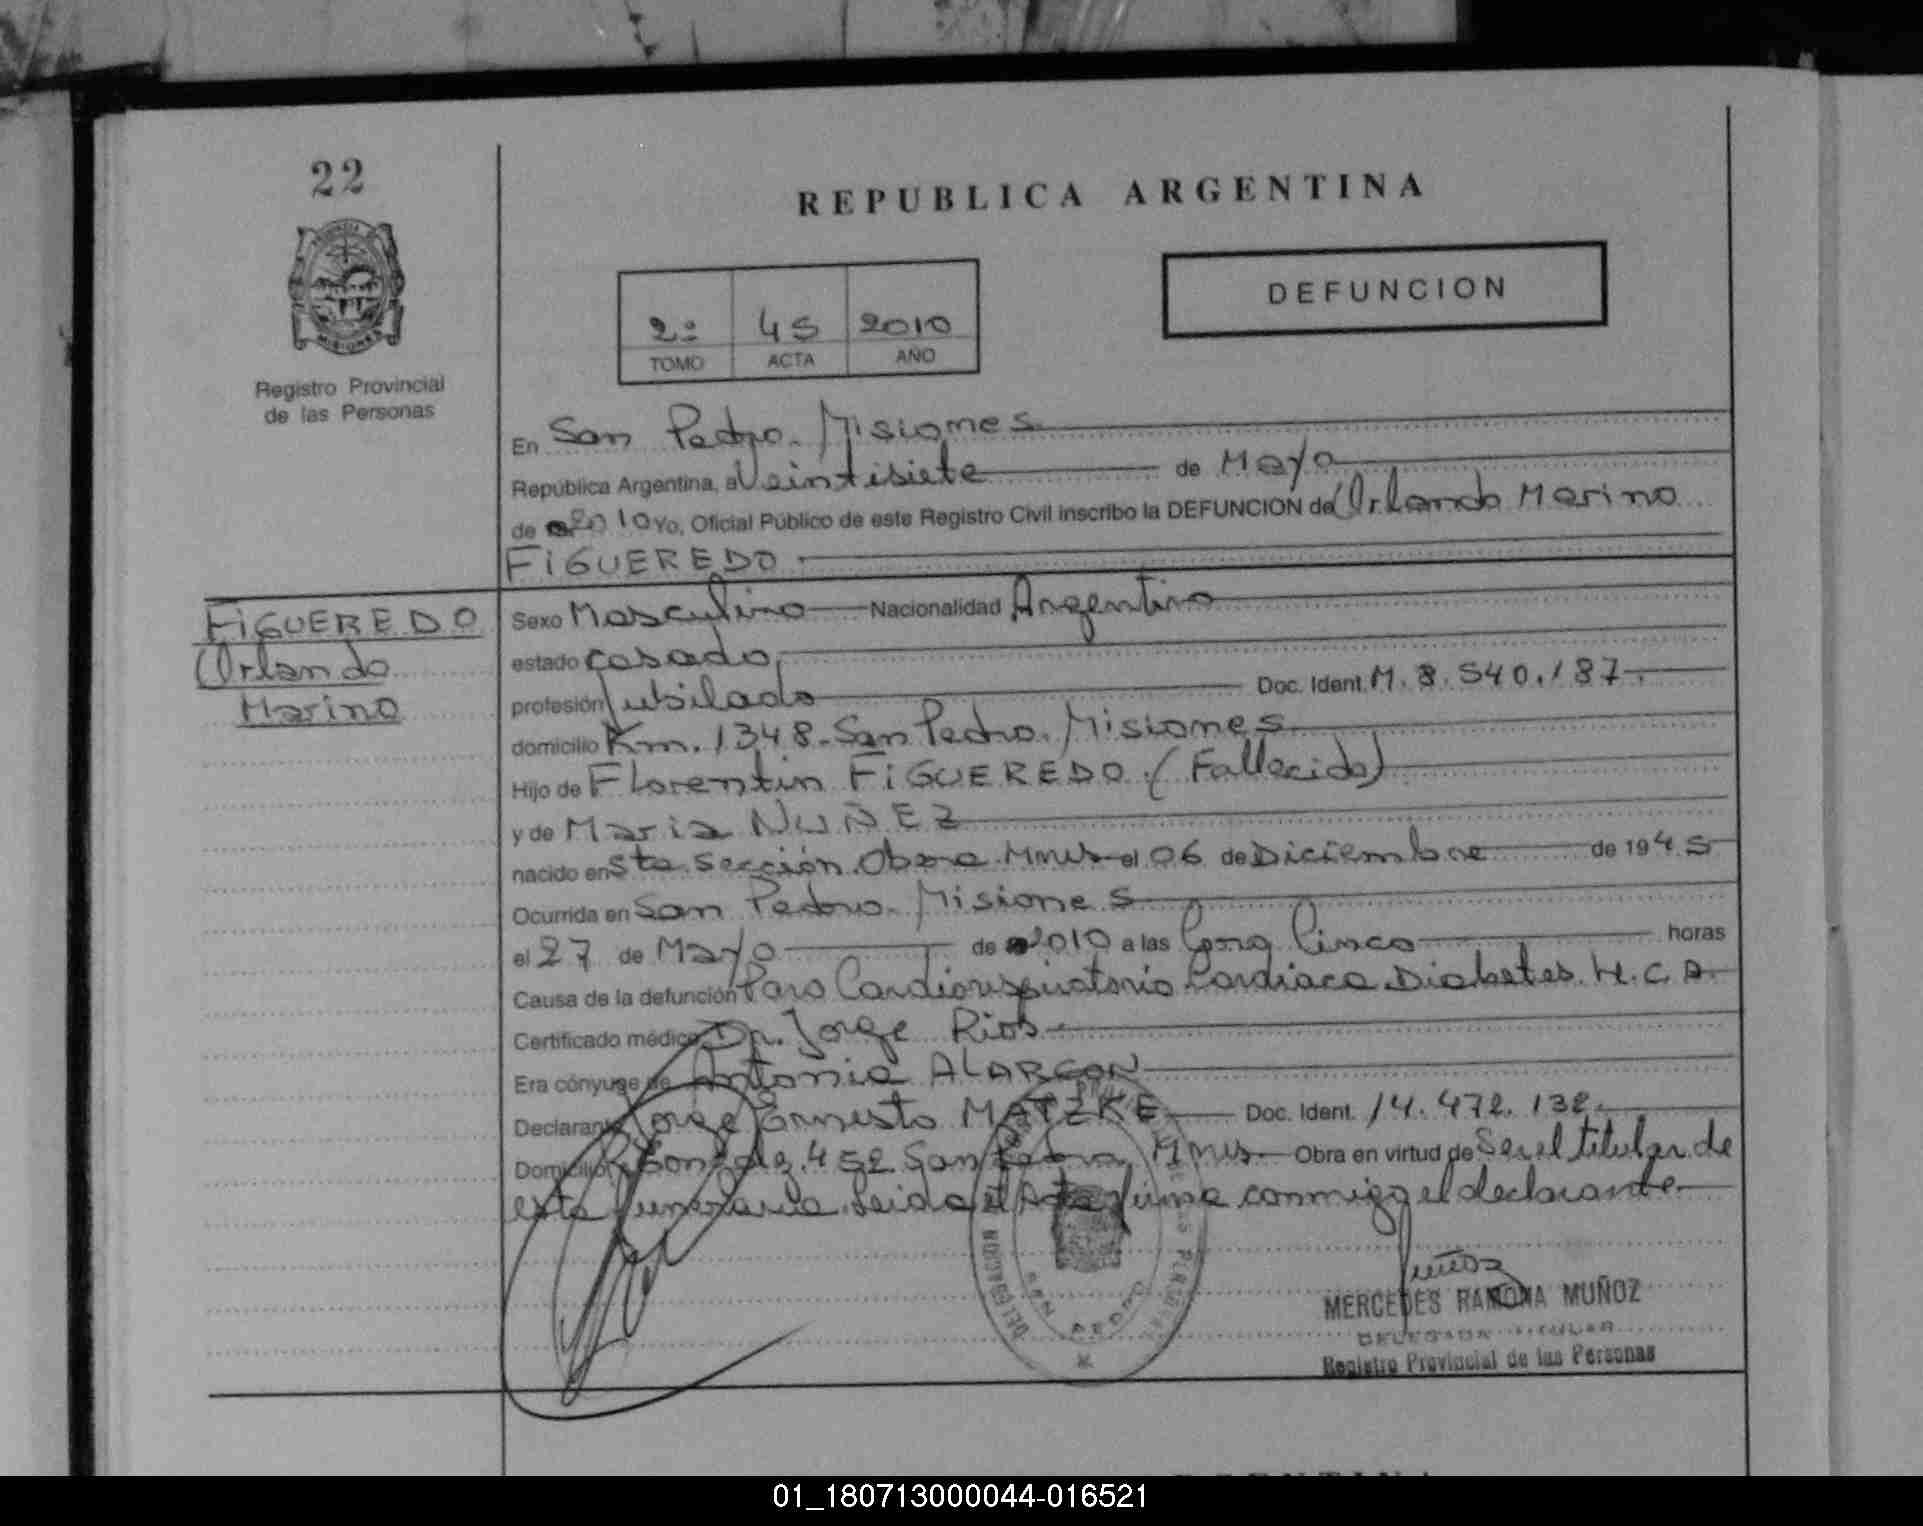 22
REPUBLICA ARGENTINA
DEFUNCION
2º 45 2010
TOMO ACTA AÑO
Registro Provincial
de las Personas
En San Pedro. Misiones
República Argentina, a Veintisiete de Mayo
de 2010 Yo, Oficial Público de este Registro Civil inscribo la DEFUNCION de Orlando Marino
FIGUEREDO
FIGUEREDO
Orlando
Marino
Sexo Masculino Nacionalidad Argentino
estado casado
profesión Jubilado Doc. Ident. M. 8.540.187.
domicilio Km. 1348. San Pedro. Misiones
Hijo de Florentin FIGUEREDO. (Fallecido)
y de Maria NUÑEZ
nacido en Sta. Sección. Obera Mnes el 06 de Diciembre de 1945
Ocurrida en San Pedro. Misiones
el 27 de Mayo de 2010 a las Cinco horas
Causa de la defunción Paro Cardiorespiratorio Cardiaca Diabetes. H.C.A.
Certificado médico Dr. Jorge Rios
Era cónyuge de Antonia ALARCON
Declarante Jorge Ernesto MATZKE Doc. Ident. 14.472.132.
Domicilio 452 San Pedro Mnes. Obra en virtud de Ser el titular de
esta funeraria. Leida el Acta firma conmigo el declarante.
DELEGACION
SAN PEDRO
Muñoz
MERCEDES RAMONA MUÑOZ
DELEGADA TITULAR
Registro Provincial de las Personas
01_180713000044-016521